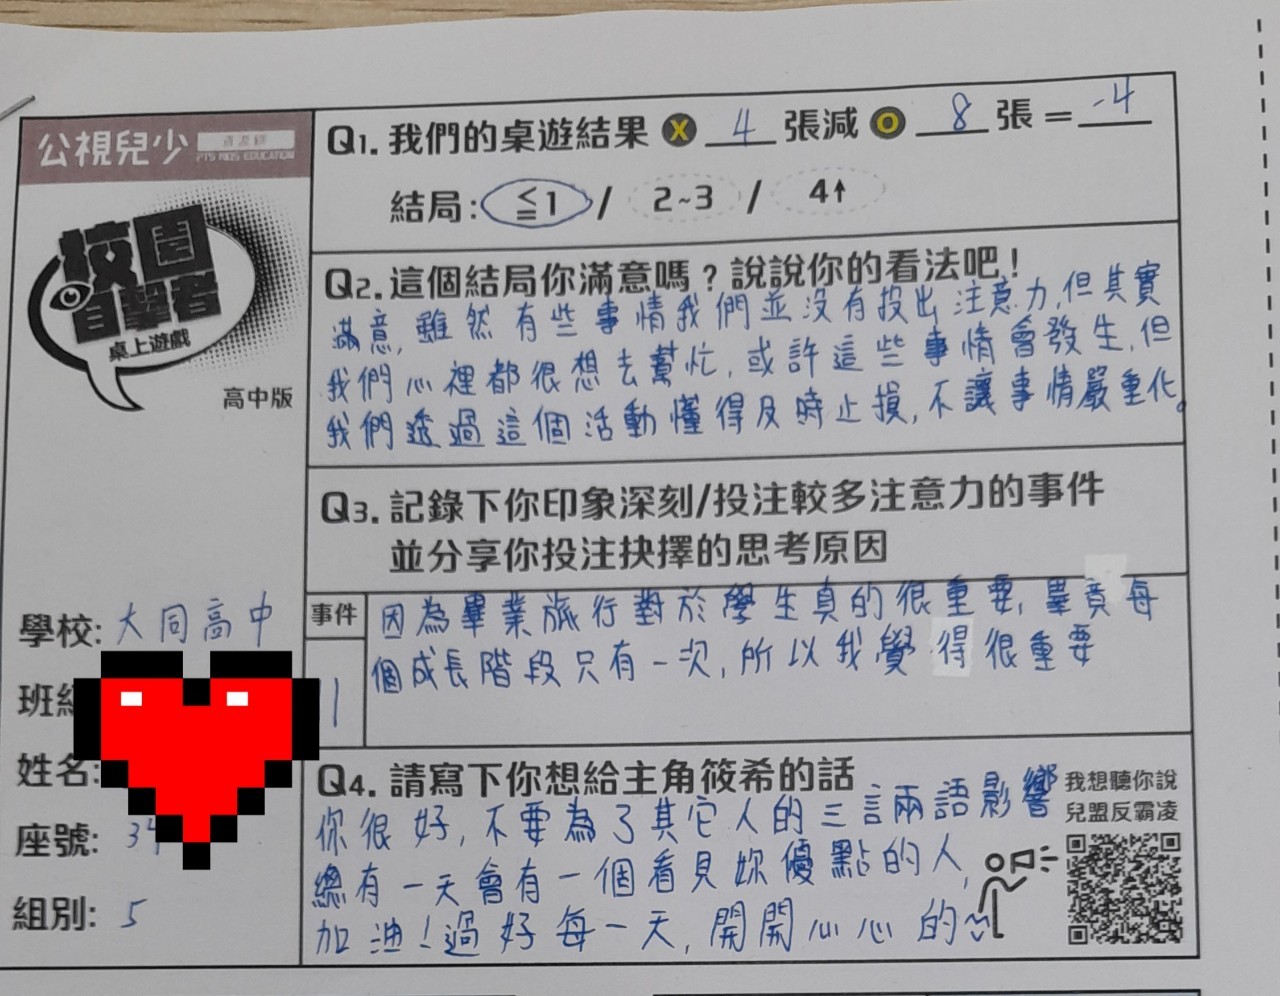 公視兒少
PTS KIDS EDUCATION
校園
目擊者
桌上遊戲
高中版
學校: 大同高中
班級
姓名:
座號: 34
組別: 5
Q1. 我們的桌遊結果 X 4 張減 O 8 張 = -4
結局: ≦1 / 2~3 / 4↑
Q2. 這個結局你滿意嗎？說說你的看法吧！
滿意, 雖然有些事情我們並沒有投出注意力, 但其實
我們心裡都很想去幫忙, 或許這些事情會發生, 但
我們透過這個活動懂得及時止損, 不讓事情嚴重化。
Q3. 記錄下你印象深刻/投注較多注意力的事件
並分享你投注抉擇的思考原因
事件
11
因為畢業旅行對於學生真的很重要, 畢竟每
個成長階段只有一次, 所以我覺得很重要
Q4. 請寫下你想給主角筱希的話
你很好, 不要為了其它人的三言兩語影響
總有一天會有一個看見妳優點的人,
加油！過好每一天, 開開心心的~
我想聽你說
兒盟反霸凌